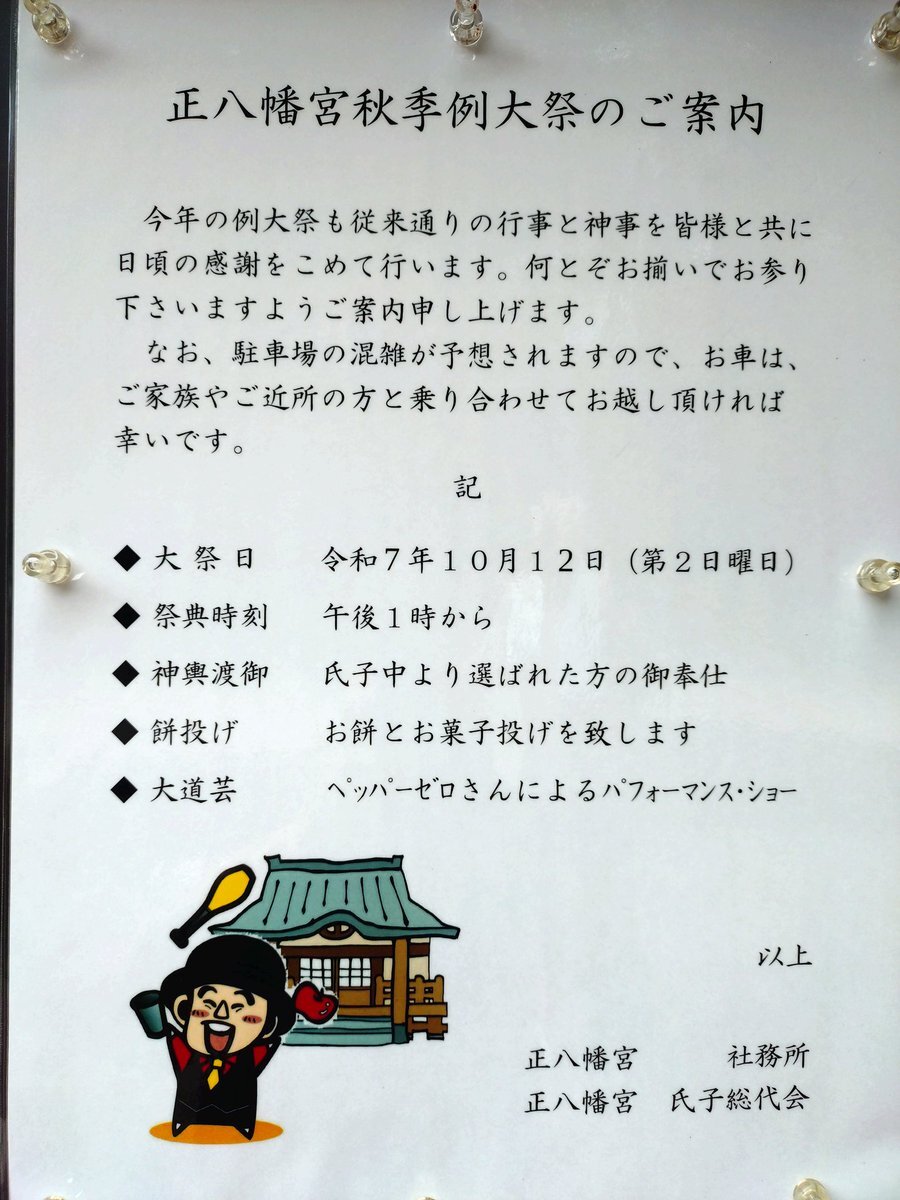 正八幡宮秋季例大祭のご案内
今年の例大祭も従来通りの行事と神事を皆様と共に
日頃の感謝をこめて行います。何とぞお揃いでお参り
下さいますようご案内申し上げます。
なお、駐車場の混雑が予想されますので、お車は、
ご家族やご近所の方と乗り合わせてお越し頂ければ
幸いです。
記
◆ 大 祭 日 令和７年１０月１２日（第２日曜日）
◆ 祭典時刻 午後１時から
◆ 神輿渡御 氏子中より選ばれた方の御奉仕
◆ 餅投げ お餅とお菓子投げを致します
◆ 大道芸 ﾍﾟｯﾊﾟｰｾﾞﾛさんによるﾊﾟﾌｫｰﾏﾝｽ･ｼｮｰ
以上
正八幡宮 社務所
正八幡宮 氏子総代会